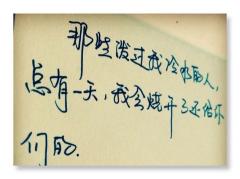 那些泼过我冷水的人,
总有一天,我会烧开了还给你
们的.